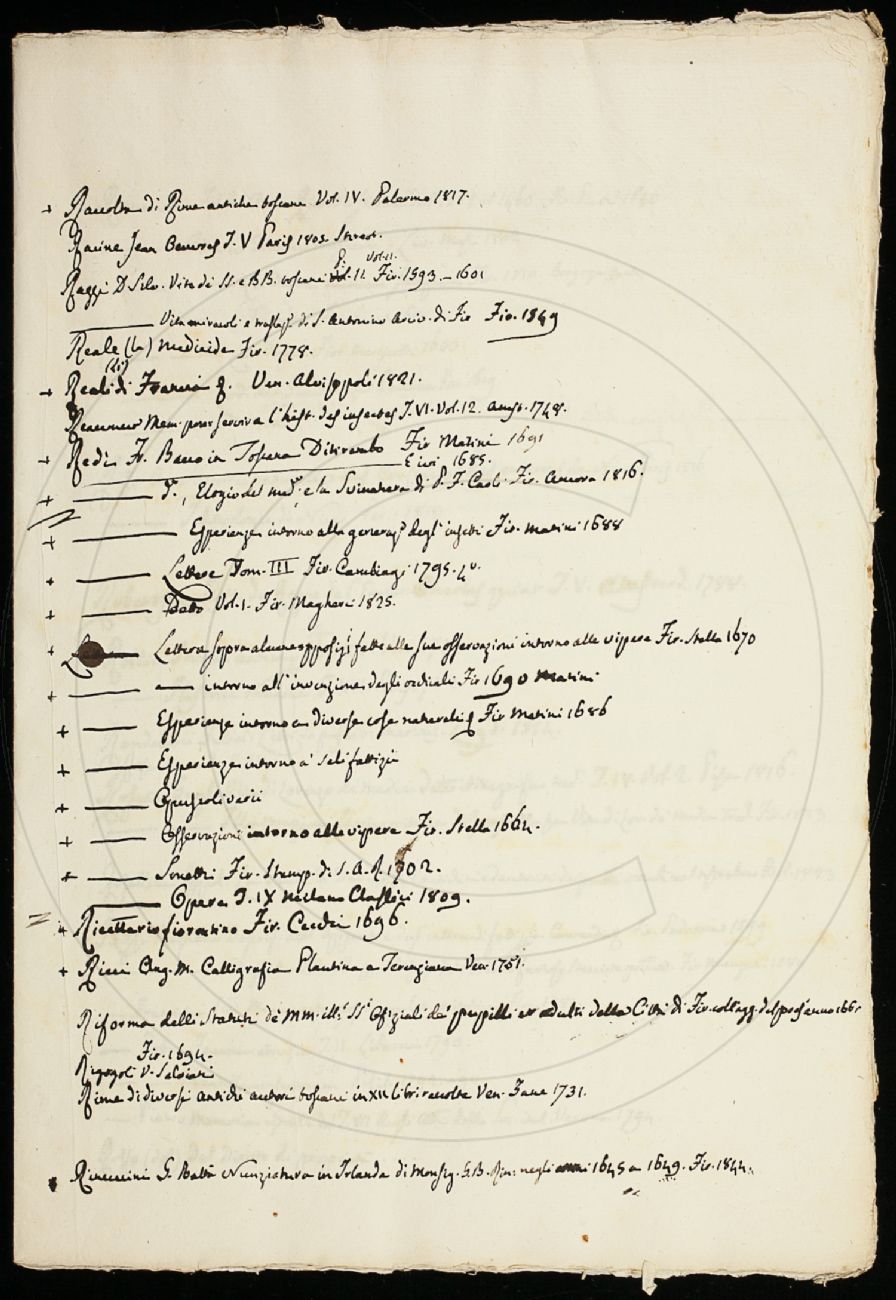 + Raccolta di Rime antiche toscane Vol. IV. Palermo 1817.
Racine Jean Oeuvres T. V Paris 1802.
Razzi D. Silv. Vite di SS. e BB. toscani Vol. II Fir. 1593. – 1601
——— Vita miracoli e traslaz. di S. Antonino Arciv. di Fir Fir. 1849
Reale (la) Medicide Fir. 1778.
+ Reali (li) di Francia 8. Ven. Alvisopoli 1821.
Reaumeur Mem. pour servir a l'hist. des insectes T. VI. Vol. 12. Amst. 1748.
+ Redi Fr. Bacco in Toscana Ditirambo Fir Matini 1691
——— E ivi 1685.
+ ——— , Elogio del med.º e la Svinatura di Fir. Ancora 1816.
+ ——— Esperienze intorno alla generaz.e degl'insetti Fir. Matini 1688
+ ——— Lettere Tom. III Fir. Cambiagi 1795. 4º.
+ ——— Dette Vol. 1. Fir. Magheri 1825.
+ ——— Lettera sopra alcune opposiz.i fatte alle sue osservazioni intorno alle vipere Fir. Stella 1670
+ ——— —— intorno all'invenzione degli occhiali Fir 1690 Matini
+ ——— Esperienze intorno a diverse cose naturali Fir Matini 1686
+ ——— Esperienze intorno a' sali fattizi
+ ——— Opuscoli varii
+ ——— Osservazioni intorno alle vipere Fir. Stella 1664.
+ ——— Sonetti Fir. Stamp. di S. A. R. 1702.
——— Opere T. IX Milano Classici 1809.
+ Ricettario fiorentino Fir. Cecchi 1696.
+ Ricci Ang. M. Calligrafia Plautina e Terenziana Ven. 1751.
Riforma delli Statuti de MM. ill.i SS.i Ofiziali de' pupilli et adulti della Città di Fir. coll'agg.
Fir. 1694.
Rigogoli V. Salviati
Rime di diversi antichi autori toscani in XII libri raccolte Ven. Zane 1731.
Rinuccini G. Batta Nunziatura in Irlanda di Monsig. G. B. Rin. negli anni 1645 a 1649. Fir. 1844.